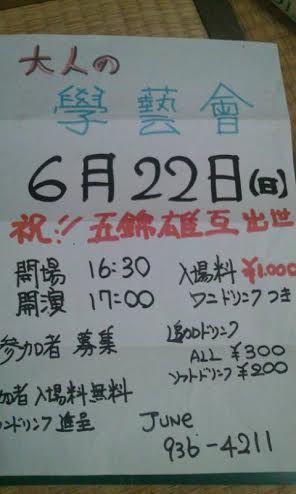 大人の
學藝會
6月22日(日)
祝!! 五錦雄互出世
開場 16:30 入場料 ¥1.000
開演 17:00 ワンドリンクつき
参加者 募集 追加ドリンク
ALL ¥300
加者入場料無料 ソフトドリンク ¥200
ンドリンク進呈 JUNE
936-4211